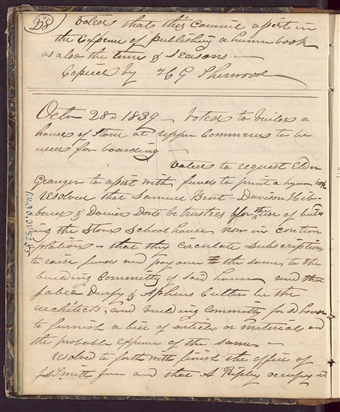 28
Voted that this Council assist in
the expense of publishing a hymn book
& also the times & Seasons —
Copied by H G Sherwood
Octr 28th 1839 — Voted to build a
house of stone at upper Commerce to be
used for boarding —
Voted to request Elder
Granger to assist with funds to print a hymn book
Resolved that Samuel Bent — Davison Heb-
bard & Daniel be trustees for the of build-
ing the Stone School house now in contem
plation — that they circulate Subscription
to raise funds and pay over the same to the
building Committy of said house and that
& Alpheus Cutler be the
architects, and building Committy for sd house
to furnish a bill of articles or materials and
the probable expense of the same —
Resolved to forth with finish the office of
Js Smith Jun and that A Ripley occupies it